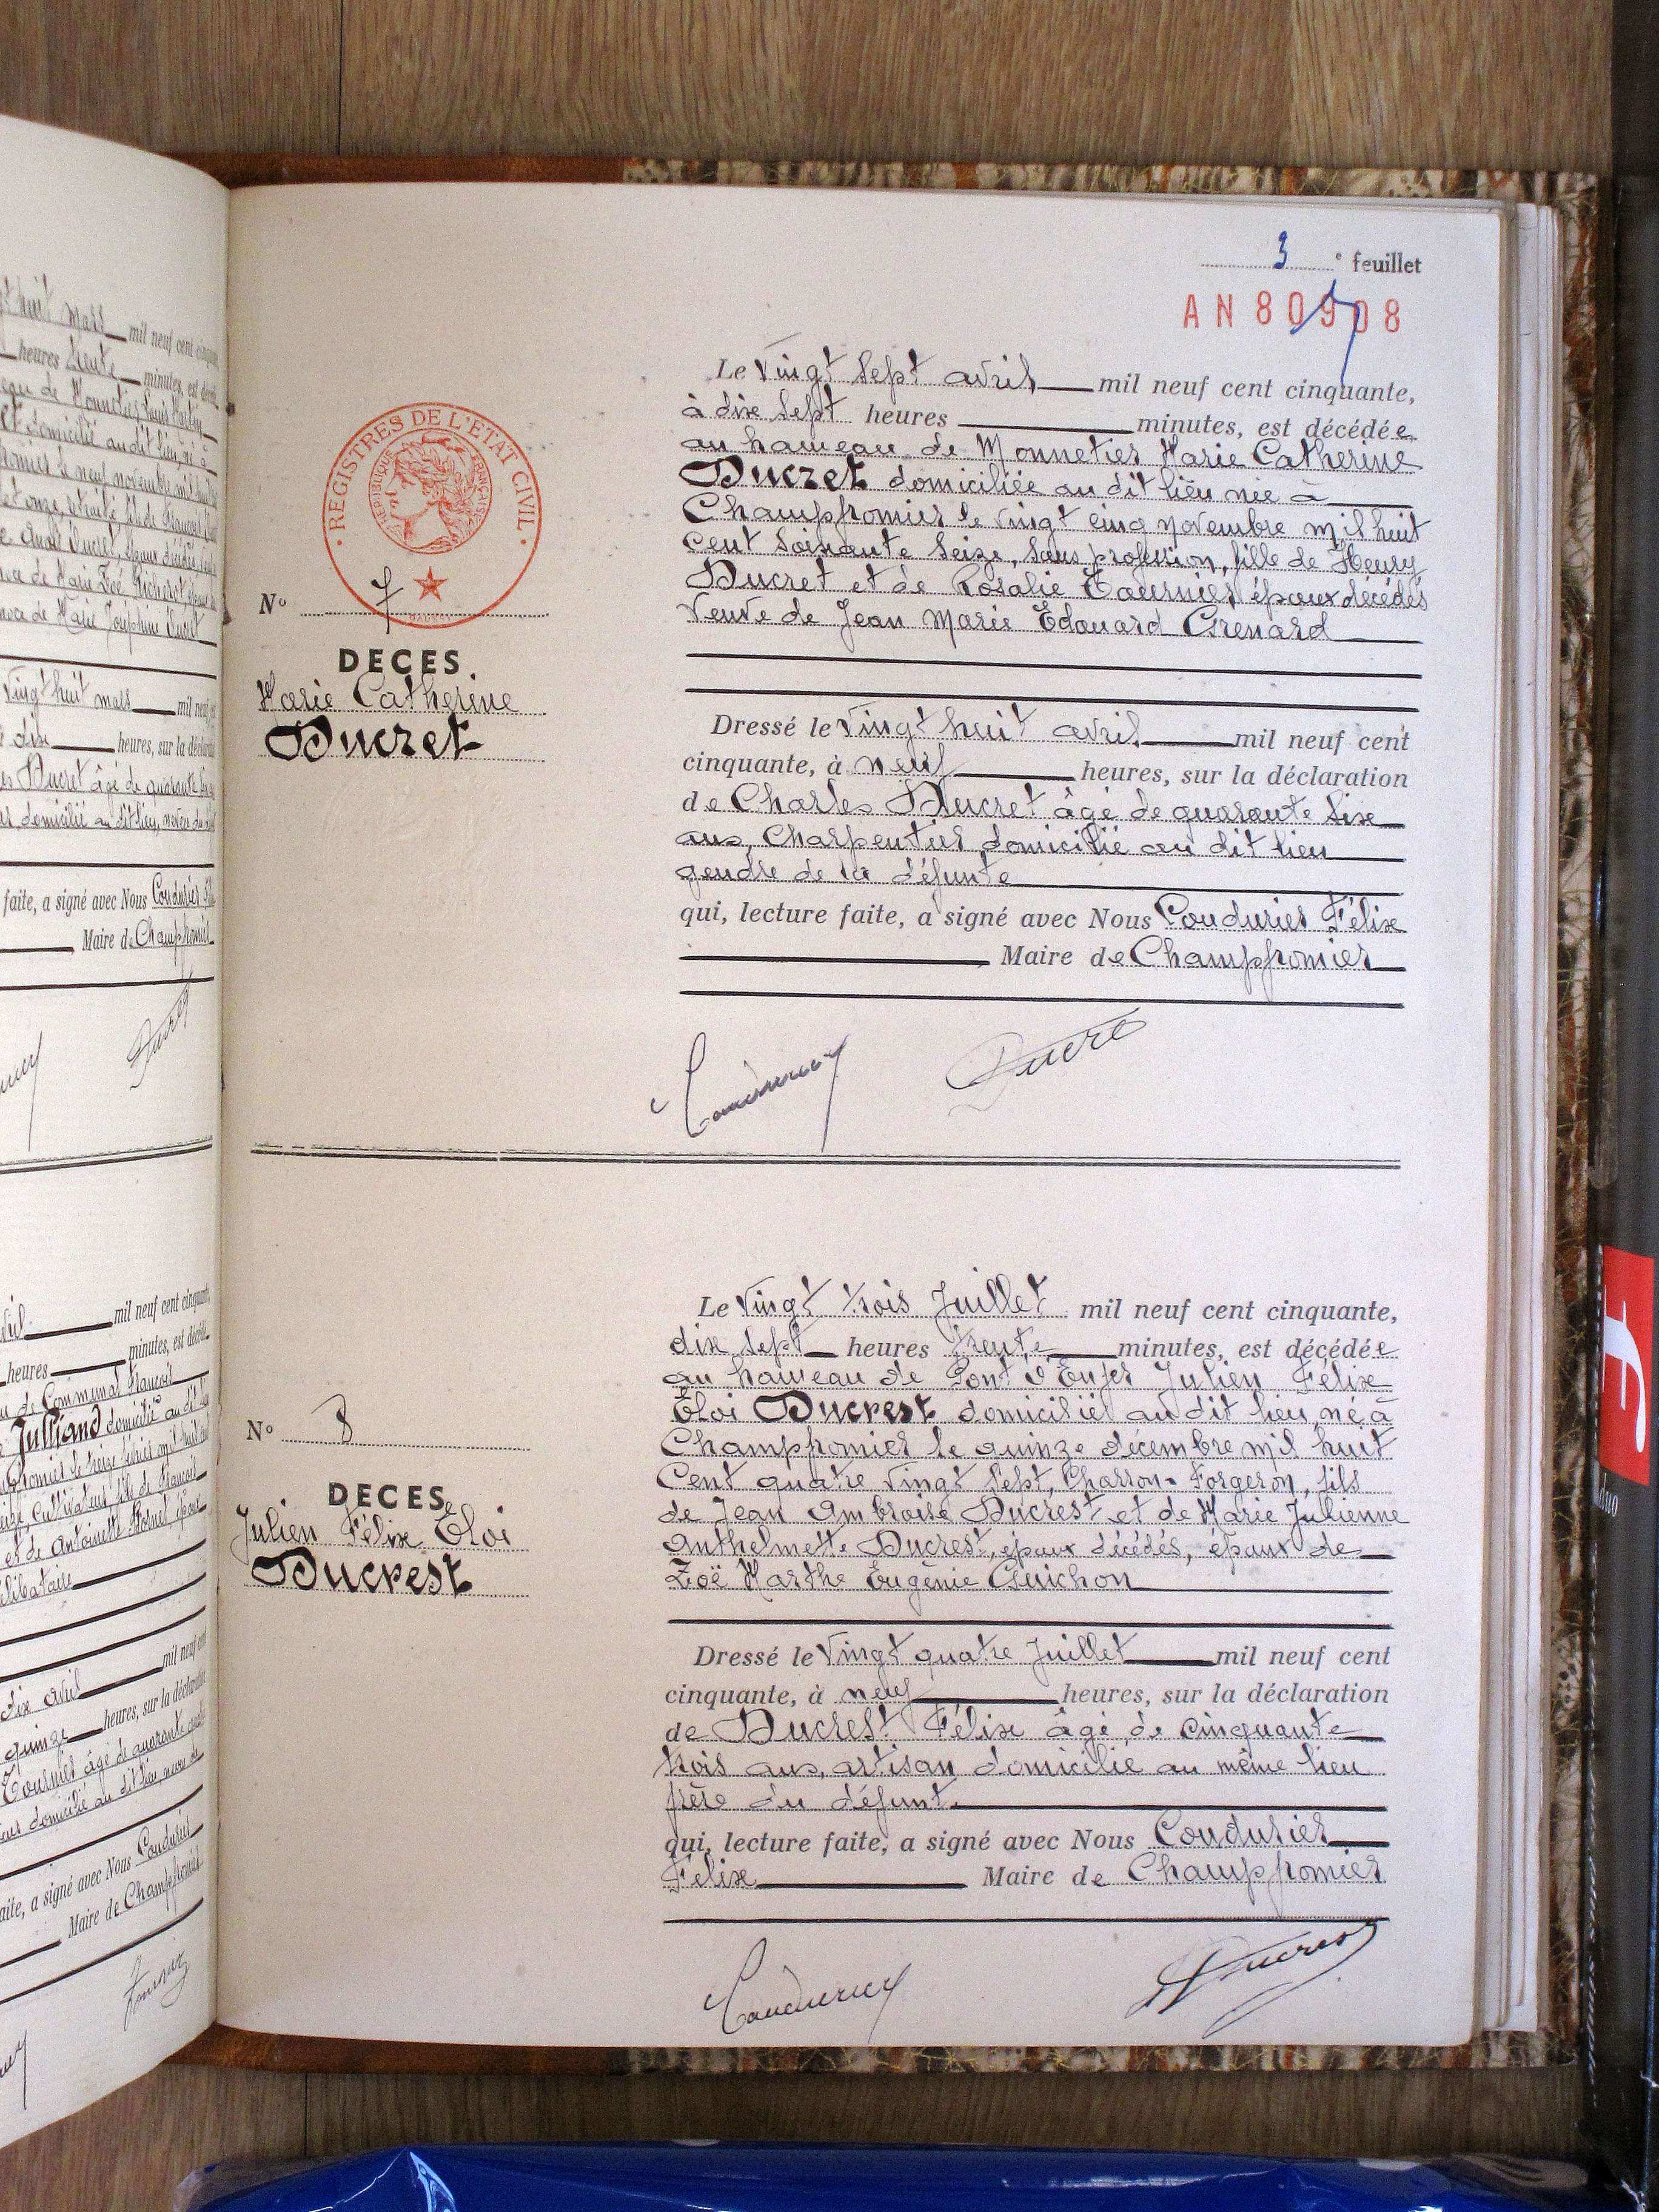 huit mars mil neuf cent
heures trente minutes, est
domicilié au dit lieu, né à
le neuf novembre mil
vingt huit mars mil
dix heures, sur la
Ducret âgé de quarante
domicilié au dit lieu, neveu du
faite, a signé avec Nous Coudurier
Maire de Champfromier
mil neuf cent cinquante,
heures minutes, est
Julliand domicilié au dit
et de Antoinette
célibataire
dix avril mil neuf
quinze heures, sur la
Tournier âgé de quarante
domicilié au dit lieu
faite, a signé avec Nous Coudurier
Maire de Champfromier
3 e feuillet
AN 80908
REGISTRES DE L'ETAT CIVIL
REPUBLIQUE FRANÇAISE
N° 7
DECES
Marie Catherine
Ducret
Le Vingt Sept avril mil neuf cent cinquante,
à dix Sept heures minutes, est décédée
au hameau de Monnetier Marie Catherine
Ducret domiciliée au dit lieu née à
Champfromier le vingt cinq novembre mil huit
Cent Soixante Seize, Sans profession, fille de Henry
Ducret et de Rosalie Tournier époux décédés
Veuve de Jean Marie Edouard Grenard
Dressé le Vingt huit avril mil neuf cent
cinquante, à neuf heures, sur la déclaration
de Charles Ducret âgé de quarante Six
ans, Charpentier domicilié au dit lieu
gendre de la défunte
qui, lecture faite, a signé avec Nous Coudurier Félix
Maire de Champfromier
Ducre
N° 8
DECES
Julien Félix Eloi
Ducrest
Le Vingt trois Juillet mil neuf cent cinquante,
dix Sept heures trente minutes, est décédée
au hameau de Pont d'Enfer Julien Félix
Eloi Ducrest domicilié au dit lieu, né à
Champfromier le quinze décembre mil huit
Cent quatre Vingt Sept, Charron-Forgeron, fils
de Jean Ambroise Ducrest et de Marie Julienne
Anthelmette Ducrest, époux décédés, époux de
Zoë Marthe Eugènie Guichon
Dressé le Vingt quatre Juillet mil neuf cent
cinquante, à neuf heures, sur la déclaration
de Ducrest Félix âgé de Cinquante
trois ans, artisan domicilié au même lieu
frère du défunt.
qui, lecture faite, a signé avec Nous Coudurier
Félix Maire de Champfromier
Ducrest
duo